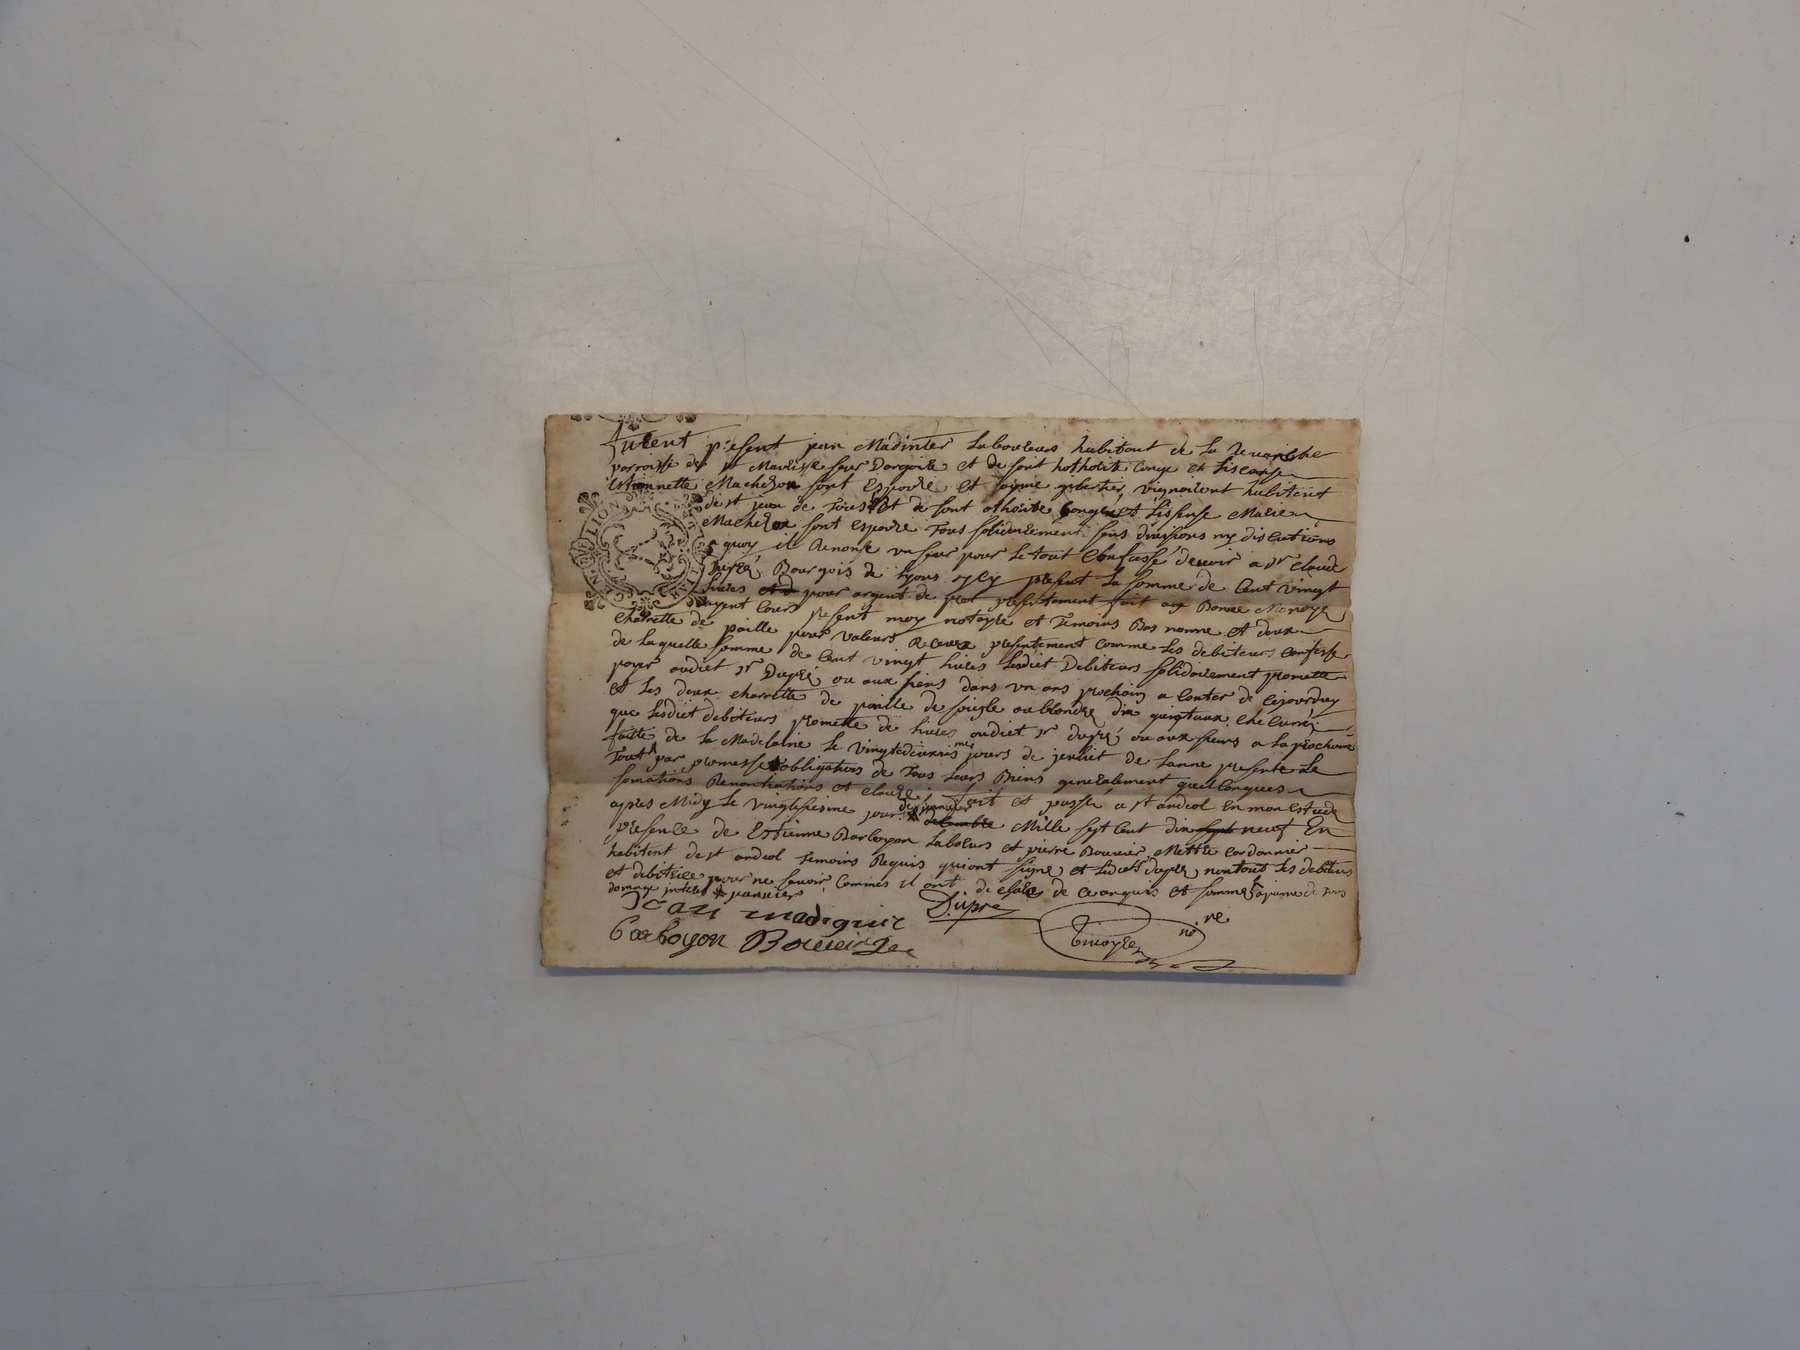 furent present jean Madinier Laboureurs habitant de La
parroisse de st Maurisse sur Dargoire et de sont hothorite conge et Liscanse
estiennette Macheron sont espouse et jaque gibertier, vignairent habitent
de st jean de Tous et de sont othorite conge et Lisense Marie
Macheron sont espouse Tous solidairement sens divisions ny discutions
a quoy il Renonse un seur pour Le tout Confessé devoir a Sr Claude
Dupré Bourgois de Lyons present La somme de Cent vingt
Livres pour argent de presentement fait aux Bonne Monoye
ayent Cours present moy notayre et Temoins Bas nomme et deux
charrette de paille pour valeurs Receue presentement comme Les debiteurs confesse
de Laquelle somme de Cent vingt Livres Lesdiet Debiteurs solidairement promette
payer audiet Sr Dupré ou aux siens dans un ans prochain a Conter de Cejourdhuy
et Les deux charrette de paille de soigle ou blondée dix quintaux Checunne
que Lesdiet debiteurs promette de Livres audiet Sr dupré ou aux siens a La prochaine
faite de La Madelaine Le vingtedeuxiesme jours de jeuliet de Lanne presente Le
Tout par promesse obligations de Tous Leurs Biens generalement quelconques
somations Renontiations et clauze fait et passé a st andeol En mon estude
apres Midy Le vingtesiesme jour de janvier Mille sept Cent dix neuf En
presence de Estienne Barboyon Labours et pierre Bouvier Mettre Cordonnier
habitent de st andeol Temoins Requis quiont signe et Ledict Sr dupré non tous Les debiteurs
et debitrice pour ne savoir Commes il ont declaré de Ce anquis et sommé
janvier
Jean madignier Dupré
Barboyon Bouvier
nore